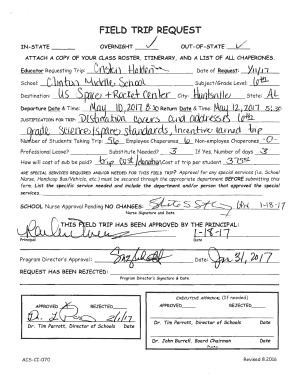 FIELD TRIP REQUEST
IN-STATE ______ OVERNIGHT ✓ OUT-OF-STATE ✓
ATTACH A COPY OF YOUR CLASS ROSTER, ITINERARY, AND A LIST OF ALL CHAPERONES.
Educator Requesting Trip: Cristen Holden Date of Request: 1/11/17
School: Clinton Middle School Subject/Grade Level: 6th
Destination: US Space & Rocket Center City Huntsville State: AL
Departure Date & Time: May 10, 2017 8:30 Return Date & Time: May 12, 2017 5:30
JUSTIFICATION FOR TRIP: Destination covers and addresses 6th
grade science/space standards, Incentive earned trip
Number of Students Taking Trip 96 Employee Chaperones 6 Non-employee Chaperones -0-
Professional Leave? Substitute Needed? 3 If Yes, Number of days 3
How will cost of sub be paid? trip cost/donation Cost of trip per student 375.00
ARE SPECIAL SERVICES REQUIRED AND/OR NEEDED FOR THIS FIELD TRIP? Approval for any special services (i.e. School
Nurse, Handicap Bus/Vehicle, etc.) must be secured through the appropriate department BEFORE submitting this
form. List the specific service needed and include the department and/or person that approved the special
services.
SCHOOL Nurse Approval Pending NO CHANGES: RN 1-18-17
Nurse Signature and Date
THIS FIELD TRIP HAS BEEN APPROVED BY THE PRINCIPAL:
1-18-17
Principal Date
Program Director's Approval: Date: Jan 31, 2017
REQUEST HAS BEEN REJECTED:
Program Director's Signature & Date
APPROVED ✓ REJECTED
2/1/17
Dr. Tim Parrott, Director of Schools Date
EXECUTIVE APPROVAL (If needed)
APPROVED REJECTED
Dr. Tim Parrott, Director of Schools Date
Dr. John Burrell, Board Chairman Date
ACS-CI-070 Revised 8.2016